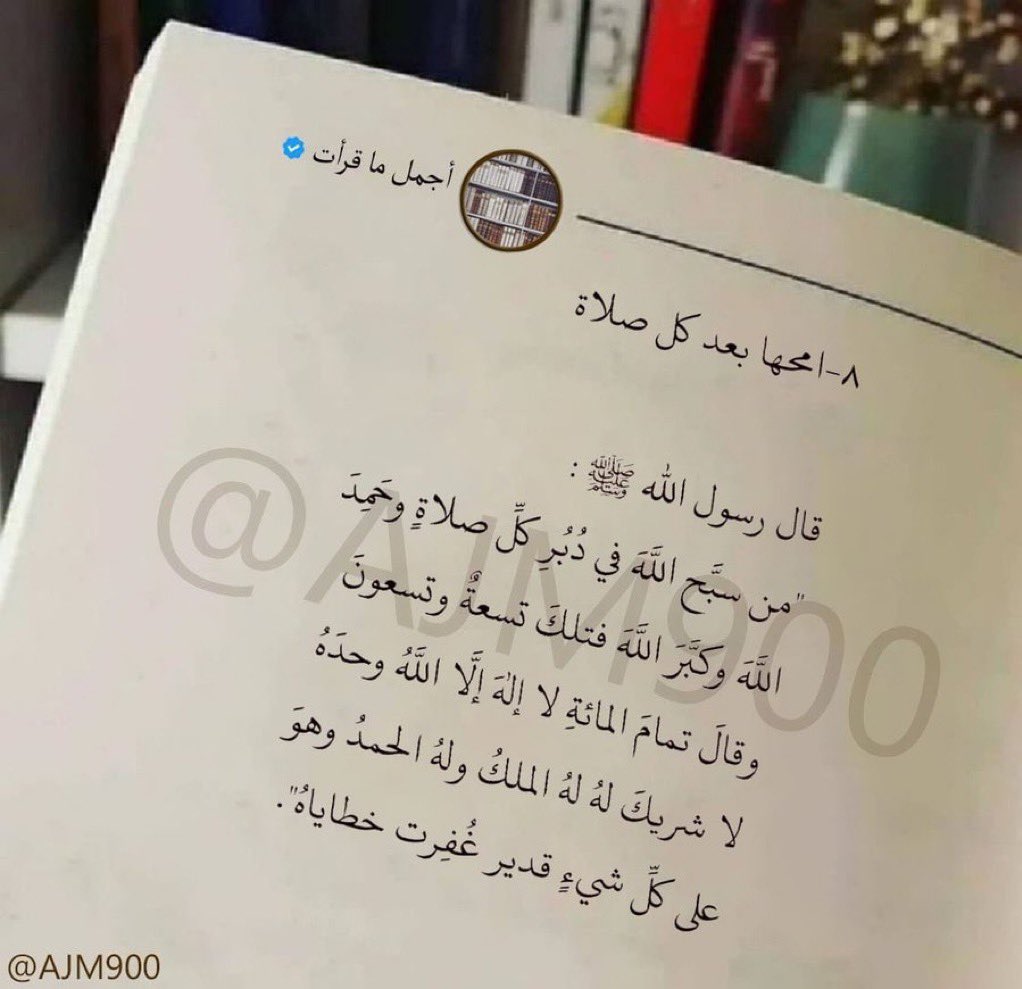 أجمل ما قرأت
٨-امحها بعد كل صلاة
قال رسول الله ﷺ :
"من سبَّح اللَّهَ في دُبُرِ كلِّ صلاةٍ وحَمِدَ
اللَّهَ وكبَّرَ اللَّهَ فتلكَ تسعةٌ وتسعونَ
وقالَ تمامَ المائةِ لا إلهَ إلَّا اللَّهُ وحدَهُ
لا شريكَ لهُ لهُ الملكُ ولهُ الحمدُ وهوَ
على كلِّ شيءٍ قدير غُفِرت خطاياهُ".
@AJM900
@AJM900